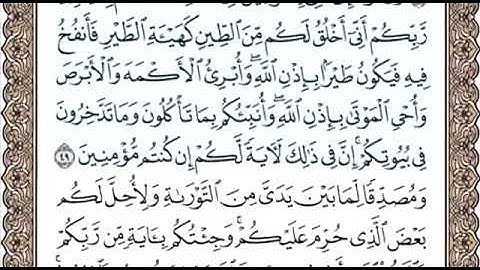 رَّبِّكُمْ أَنِّىٓ أَخْلُقُ لَكُم مِّنَ ٱلطِّينِ كَهَيْـَٔةِ ٱلطَّيْرِ فَأَنفُخُ
فِيهِ فَيَكُونُ طَيْرًۢا بِإِذْنِ ٱللَّهِۖ وَأُبْرِئُ ٱلْأَكْمَهَ وَٱلْأَبْرَصَ
وَأُحْىِ ٱلْمَوْتَىٰ بِإِذْنِ ٱللَّهِۖ وَأُنَبِّئُكُم بِمَا تَأْكُلُونَ وَمَا تَدَّخِرُونَ
فِى بُيُوتِكُمْۚ إِنَّ فِى ذَٰلِكَ لَـَٔايَةً لَّكُمْ إِن كُنتُم مُّؤْمِنِينَ ٤٩
وَمُصَدِّقًا لِّمَا بَيْنَ يَدَىَّ مِنَ ٱلتَّوْرَىٰةِ وَلِأُحِلَّ لَكُم
بَعْضَ ٱلَّذِى حُرِّمَ عَلَيْكُمْۚ وَجِئْتُكُم بِـَٔايَةٍ مِّن رَّبِّكُمْ